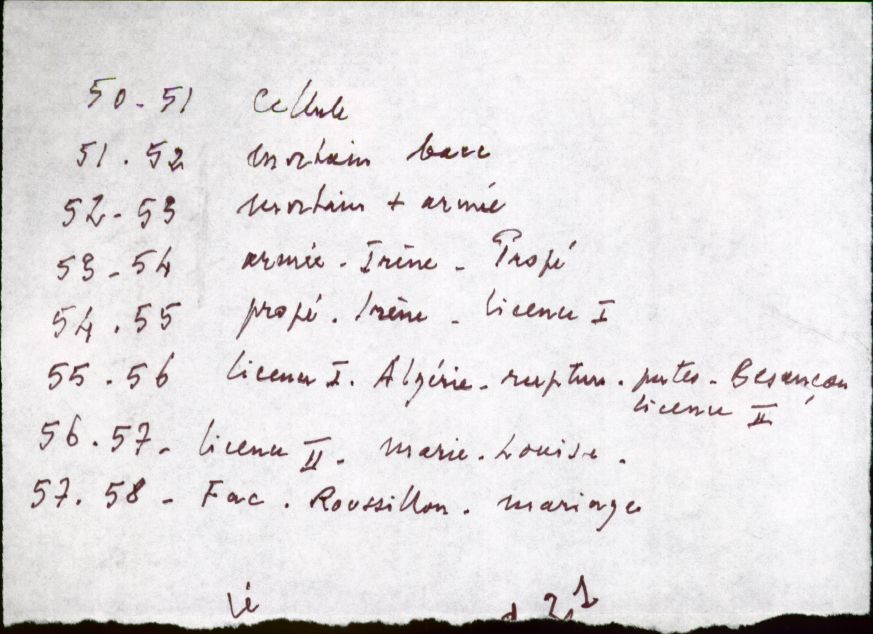 50-51 Cellule
51.52 Mortain bacc
52-53 Mortain + armée
53-54 armée - Irène - Propé
54.55 propé. Irène - licence I
55.56 licence I. Algérie - rupture. putes - Besançon
licence II
56.57- licence II. Marie-Louise.
57.58 - Fac. Roussillon. mariage